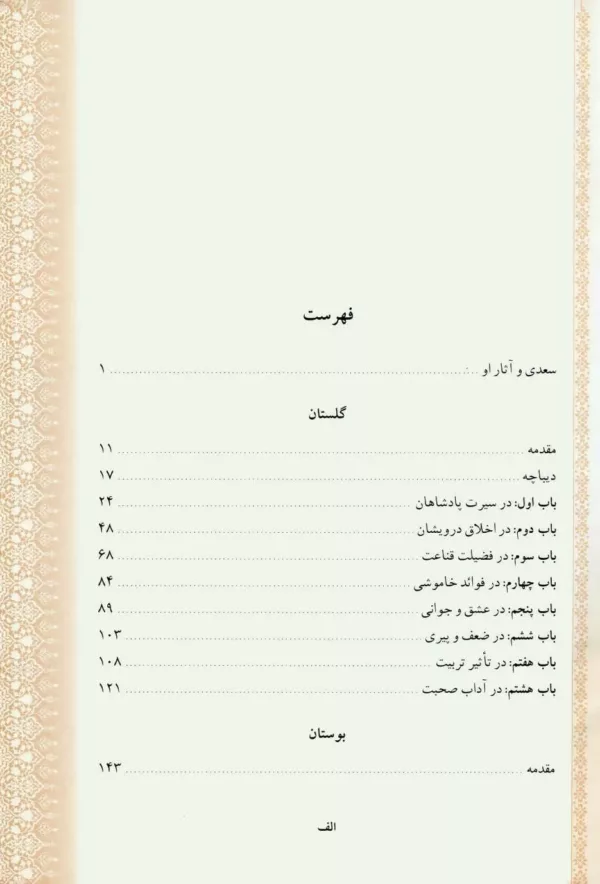 فهرست
سعدی و آثار او ........ ۱
گلستان
مقدمه ........ ۱۱
دیباچه ........ ۱۷
باب اول: در سیرت پادشاهان ........ ۲۴
باب دوم: در اخلاق درویشان ........ ۴۸
باب سوم: در فضیلت قناعت ........ ۶۸
باب چهارم: در فوائد خاموشی ........ ۸۴
باب پنجم: در عشق و جوانی ........ ۸۹
باب ششم: در ضعف و پیری ........ ۱۰۳
باب هفتم: در تأثیر تربیت ........ ۱۰۸
باب هشتم: در آداب صحبت ........ ۱۲۱
بوستان
مقدمه ........ ۱۴۳
الف